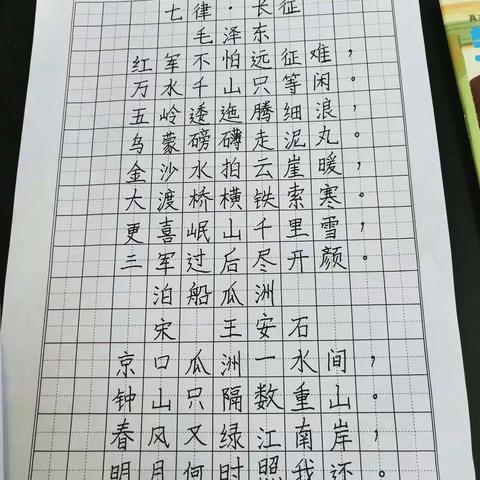 七律·长征
毛泽东
红军不怕远征难，
万水千山只等闲。
五岭逶迤腾细浪，
乌蒙磅礴走泥丸。
金沙水拍云崖暖，
大渡桥横铁索寒。
更喜岷山千里雪，
三军过后尽开颜。
泊船瓜洲
宋 王安石
京口瓜洲一水间，
钟山只隔数重山。
春风又绿江南岸，
明月何时照我还。